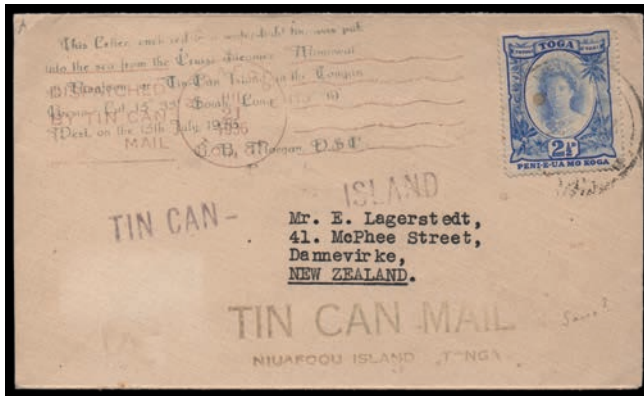 This Letter enclosed in a watertight tin was put
into the sea from the Cruise Steamer "Monowai"
"Tin Can Island" in the Tongan
Lat. 15° 35' South Long.
West on the 15th July, 1936
Morgan, D.S.C
DISPATCHED
BY TIN CAN
MAIL
1936
TOGA
2½d
PENI-E-UA MO KOGA
TIN CAN - ISLAND
Mr. E. Lagerstedt,
41. McPhee Street,
Dannevirke,
NEW ZEALAND.
TIN CAN MAIL
NIUAFOOU ISLAND TONGA